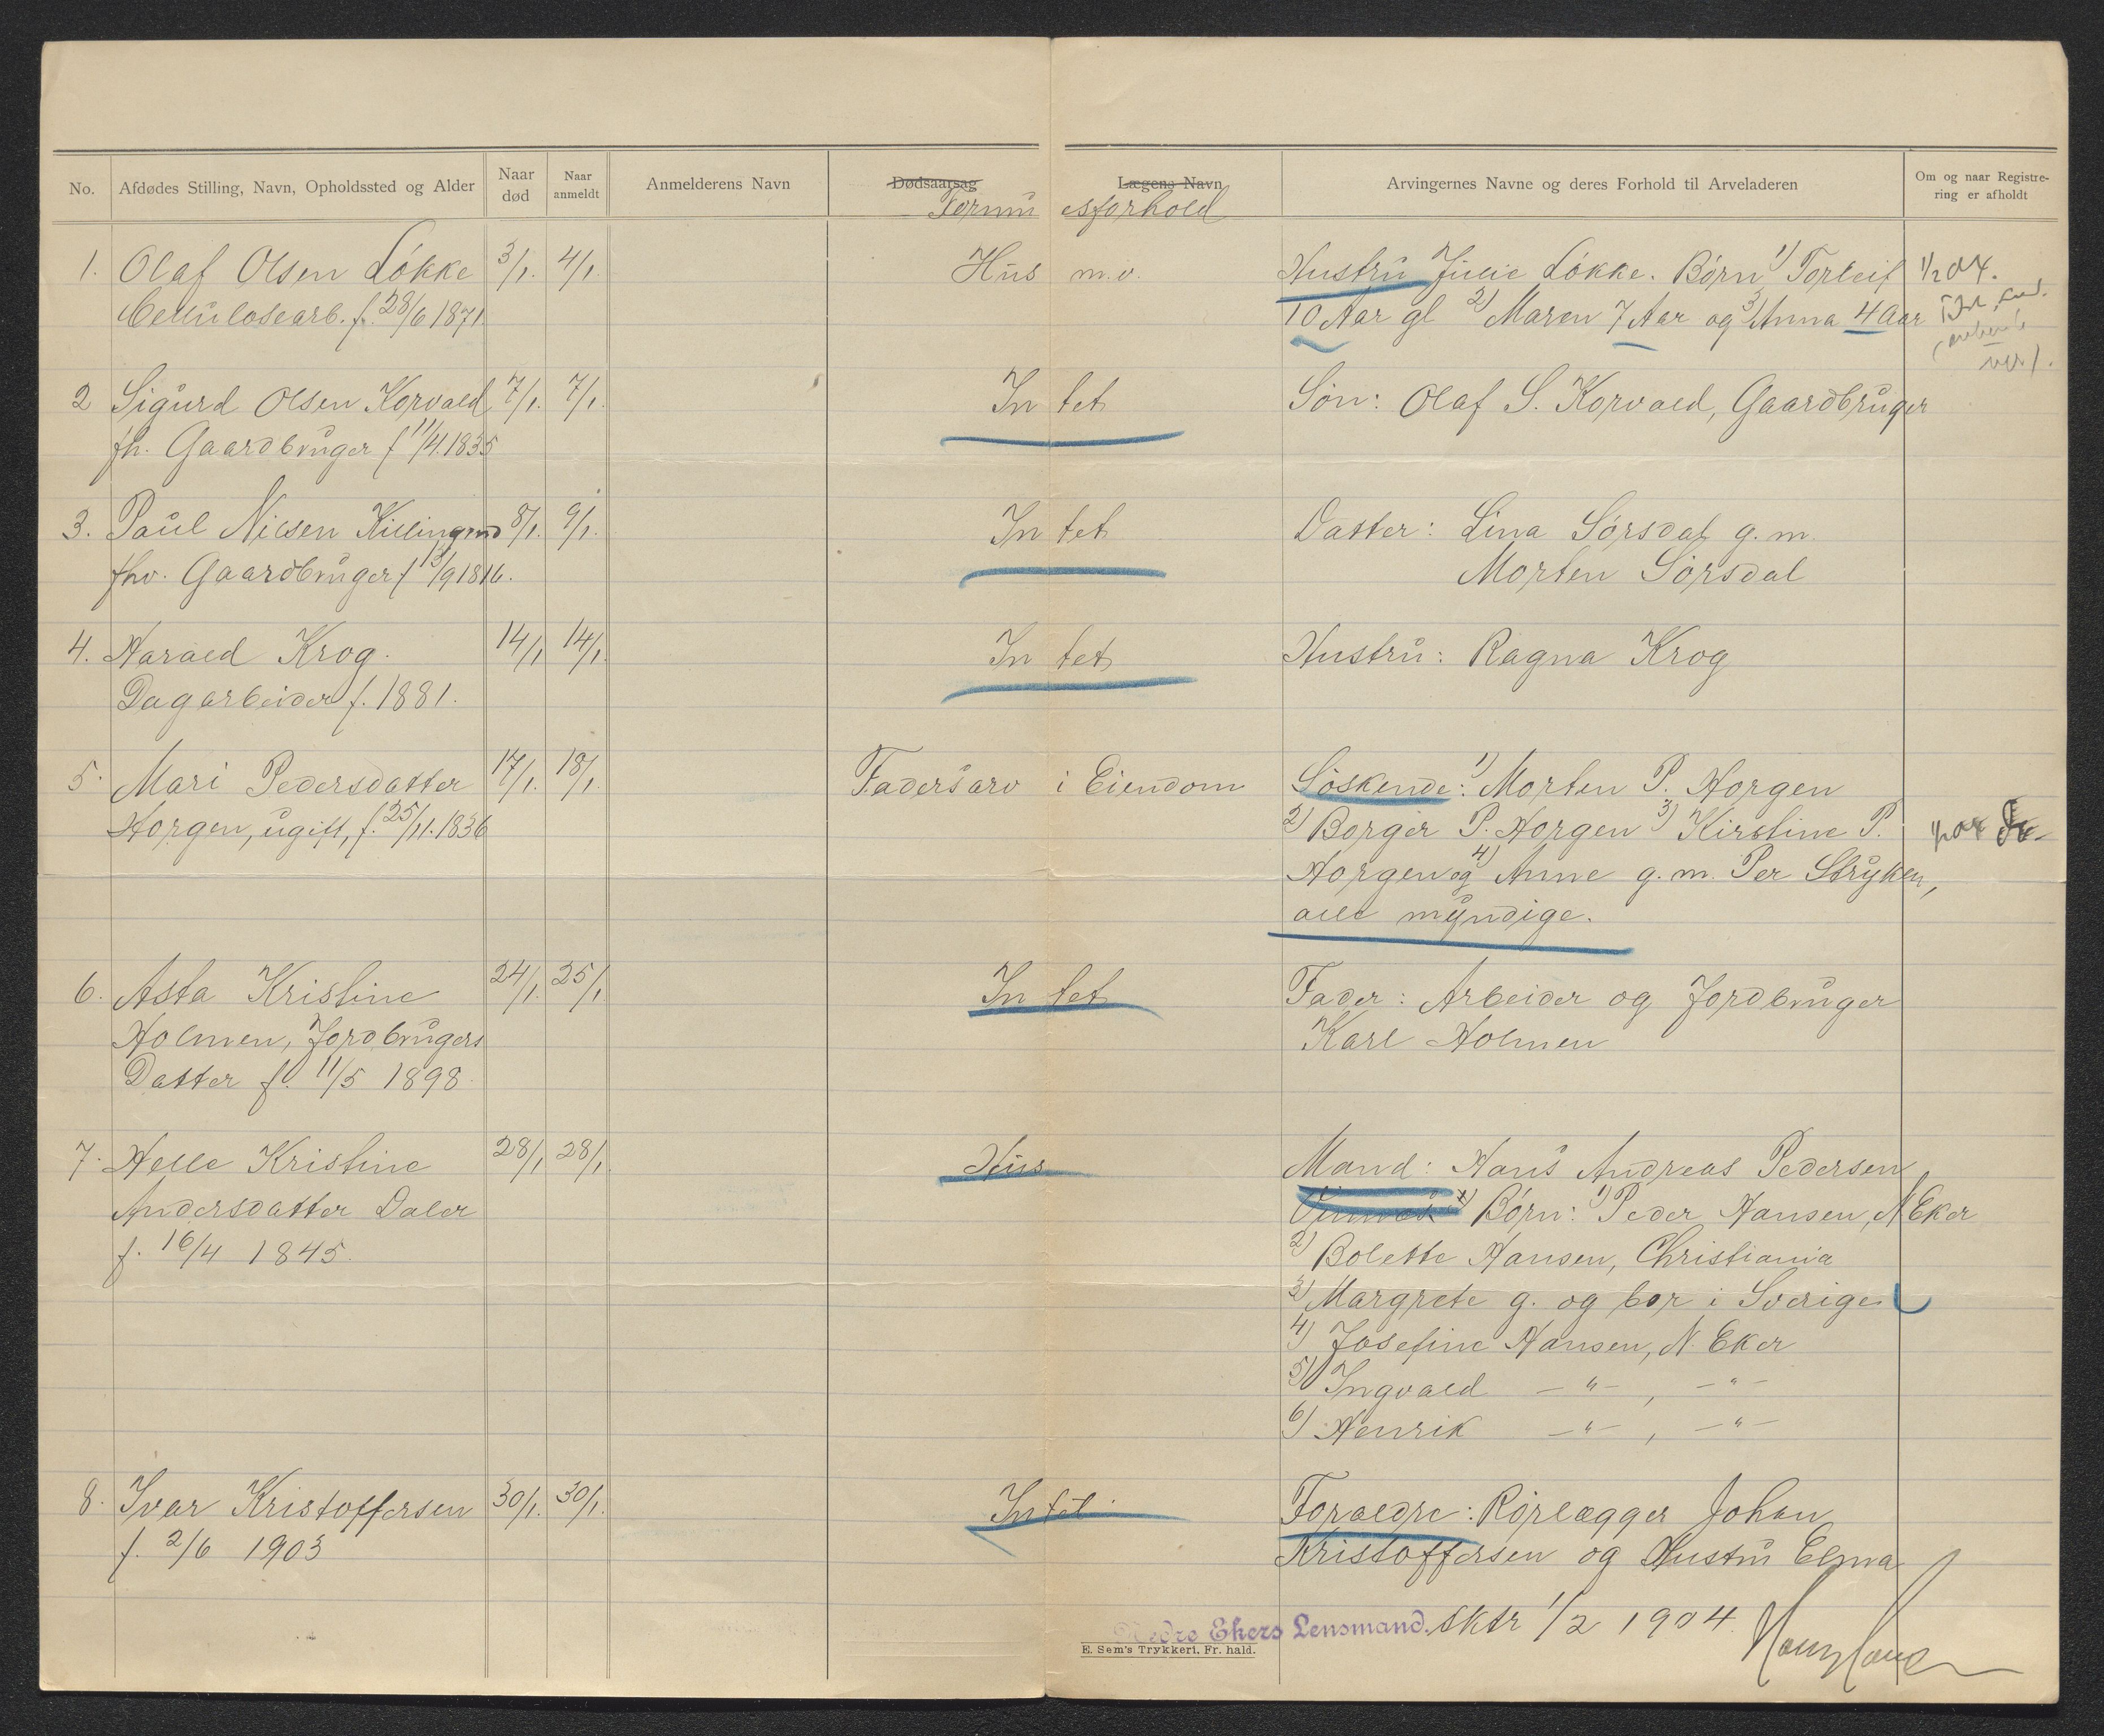 No.
Afdødes Stilling, Navn, Opholdssted og Alder
Naar død
Naar anmeldt
Anmelderens Navn
Dødsaarsag
Lægens Navn
Formuesforhold
Arvingernes Navne og deres Forhold til Arveladeren
Om og naar Registre-
ring er afholdt
1. Olaf Olsen Løkke 3/1. 4/1 Hus m.v. Hustru Julie Løkke. Børn 1) Torleif
Cellulosearb. f. 28/6 1871 10 Aar gl 2) Maren 7 Aar og 3) Anna 4 Aar
2 Sigurd Olsen Korvald 7/1. 7/1. Intet Søn: Olaf S. Korvald, Gaardbruger
fh. Gaardbruger f 11/4.1835
3. Paul Nilsen Killingrud 8/1. 9/1. Intet Datter: Lina Sørsdal g.m.
fhv. Gaardbruger f 13/9 1816. Morten Sørsdal
4. Harald Krog. 14/1 14/1. Intet Hustru: Ragna Krog
Dagarbeider f. 1881.
5. Mari Pedersdatter 17/1. 18/1. Fadersarv i Eiendom Søskende: 1) Morten P. Horgen
Horgen, ugift, f. 25/11.1836 2) Borger P. Horgen 3) Kirstine P.
Horgen og 4) Anne g.m. Per Stryken,
alle myndige.
6. Asta Kristine 24/1. 25/1 Intet Fader: Arbeider og Jordbruger
Holmen, Jordbrugers Karl Holmen
Datter f. 11/5 1898.
7. Helle Kristine 28/1 28/1. Hus Mand: Hans Andreas Pedersen
Andersdatter Daler Børn: 1) Peder Hansen, N Eker
f. 16/4 1845. 2) Bolette Hansen, Christiania
3) Margrete g. og bor i Sverige
4) Josefine Hansen, N. Eker
5) Ingvald —"— , —"—
6) Henrik —"— , —"—
8. Ivar Kristoffersen 30/1. 30/1. Intet Forældre: Rørlægger Johan
f. 2/6 1903 Kristoffersen og Hustru Elma
Nedre Ekers Lensmand. sktr 1/2 1904.
E. Sem's Trykkeri. Fr. hald.